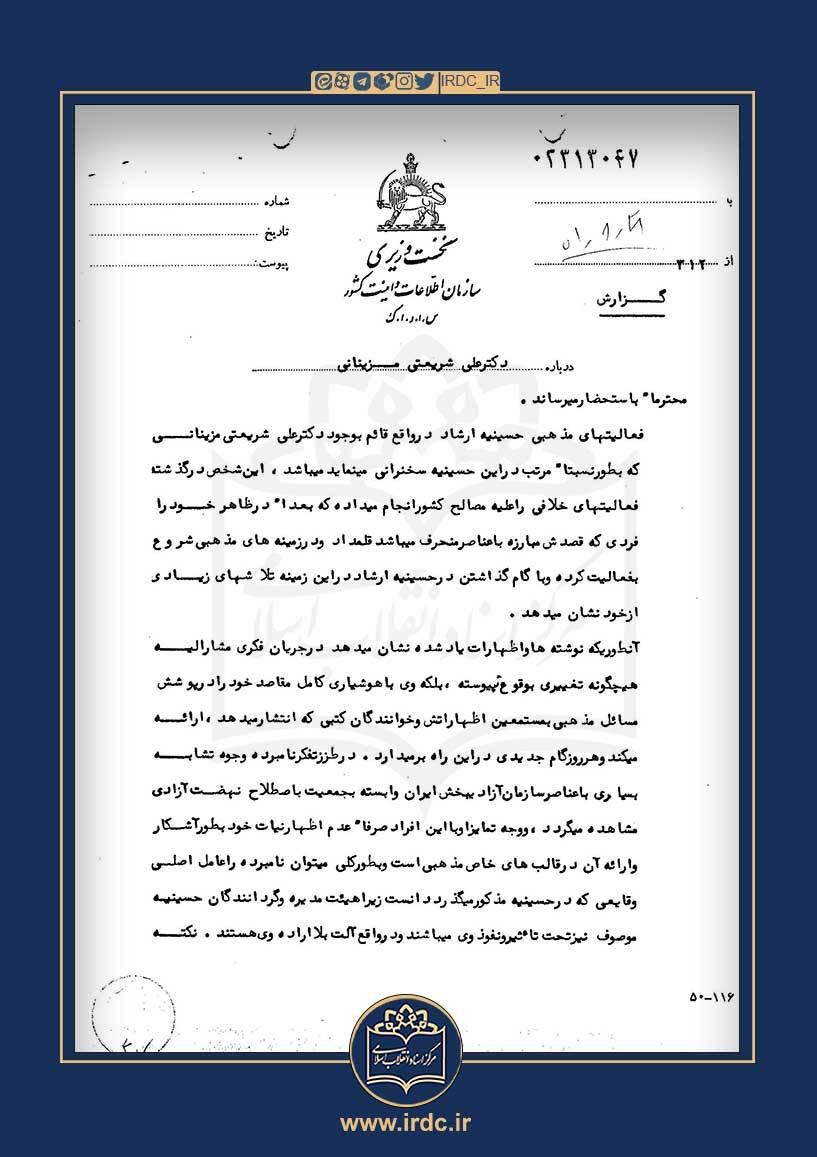 IRDC_IR
۰۲۳۱۳۰۶۷
به
شماره
تاریخ
از ۳۱۲
پیوست
نخست وزیری
سازمان اطلاعات و امنیت کشور
س.ا.و.ا.ک
گزارش
درباره دکترعلی شریعتی مزینانی
محترما" باستحضارمیرساند .
فعالیتهای مذهبی حسینیه ارشاد درواقع قائم بوجود دکترعلی شریعتی مزینانی
که بطورنسبتا" مرتب دراین حسینیه سخنرانی مینماید میباشد ، این شخص درگذشته
فعالیتهای خلافی راعلیه مصالح کشورانجام میداده که بعدا" درظاهر خود را
فردی که قصدش مبارزه باعناصرمنحرف میباشد قلمداد ودرزمینه های مذهبی شروع
بفعالیت کرده وبا گام گذاشتن درحسینیه ارشاد دراین زمینه تلاشهای زیادی
ازخود نشان میدهد .
آنطوریکه نوشته هاواظهارات یاد شده نشان میدهد درجریان فکری مشارالیه
هیچگونه تغییری بوقوع نپیوسته ، بلکه وی باهوشیاری کامل مقاصد خود رادرپوشش
مسائل مذهبی بمستمعین اظهاراتش وخوانندگان کتبی که انتشارمیدهد ، ارائه
میکند وهرروزگام جدیدی دراین راه برمیدارد . درطرزتفکرنامبرده وجوه تشابه
بسیاری باعناصرسازمان آزادیبخش ایران وابسته بجمعیت باصطلاح نهضت آزادی
مشاهده میگردد ، ووجه تمایزاوبااین افراد صرفا" عدم اظهارنیات خود بطورآشکار
وارائه آن درقالب های خاص مذهبی است وبطورکلی میتوان نامبرده راعامل اصلی
وقایعی که درحسینیه مذکورمیگذرد دانست زیراهیئت مدیره وگردانندگان حسینیه
موصوف نیزتحت تاثیرونفوذ وی میباشند ودرواقع آلت بلااراده وی هستند . نکته
۵۰-۱۱۶
مرکز اسناد انقلاب اسلامی
www.irdc.ir